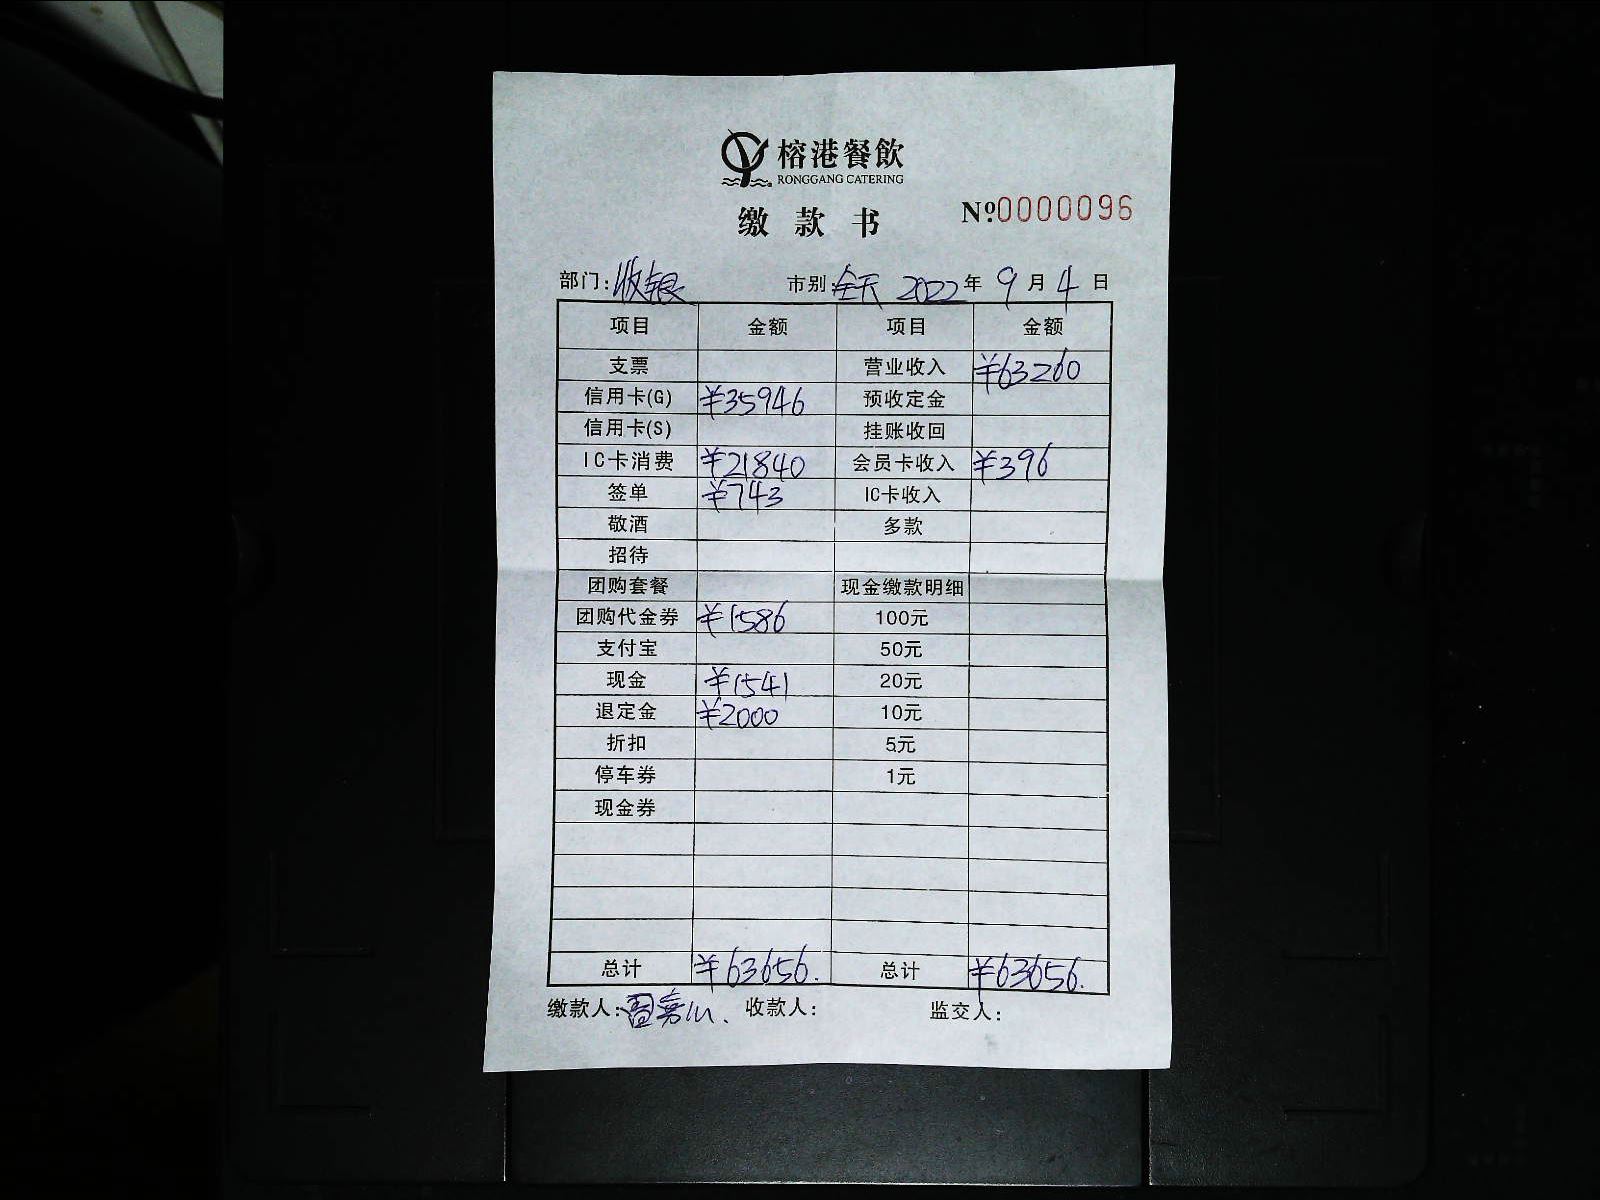 榕港餐飲
RONGGANG CATERING
缴款书 №0000096
部门:收银 市别:全天 2022年9月4日
项目 金额 项目 金额
支票 营业收入 ¥63260
信用卡(G) ¥35946 预收定金
信用卡(S) 挂账收回
IC卡消费 ¥21840 会员卡收入 ¥396
签单 ¥743 IC卡收入
敬酒 多款
招待
团购套餐 现金缴款明细
团购代金券 ¥1586 100元
支付宝 50元
现金 ¥1541 20元
退定金 ¥2000 10元
折扣 5元
停车券 1元
现金券
总计 ¥63656. 总计 ¥63656.
缴款人: 收款人: 监交人: